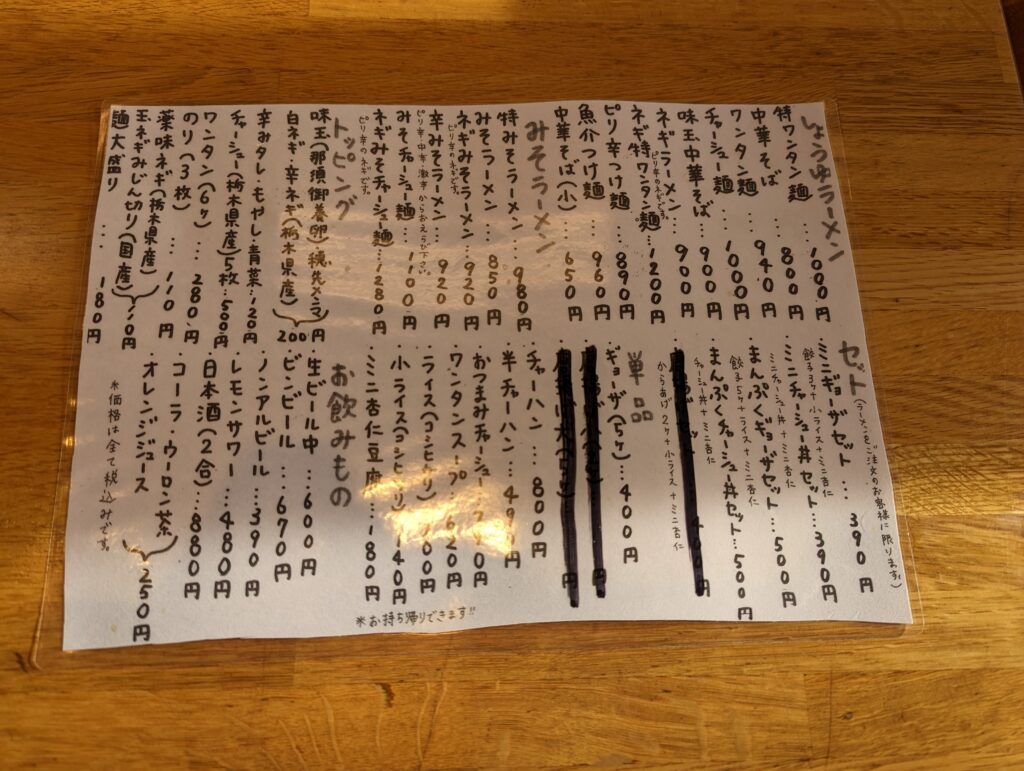 しょうゆラーメン
特ワンタン麺 … 1000円
中華そば … 800円
ワンタン麺 … 940円
チャーシュー麺 … 1000円
味玉中華そば … 900円
ネギラーメン … 900円
ピリ辛のネギです。
ネギ特ワンタン麺 … 1200円
ピリ辛つけ麺 … 890円
魚介つけ麺 … 960円
中華そば(小) … 650円
みそラーメン
特みそラーメン … 980円
みそラーメン … 850円
ネギみそラーメン … 920円
ピリ辛のネギです。
辛みそラーメン … 920円
ピリ辛・中辛・激辛からおえらび下さい。
みそチャーシュー麺 … 1100円
ネギみそチャーシュー麺 … 1280円
ピリ辛のネギです。
トッピング
味玉(那須御養卵)穂先メンマ
白ネギ・辛ネギ(栃木県産) 200円
辛みタレ・もやし・青菜 … 120円
チャーシュー(栃木県産)5枚 … 500円
ワンタン(6ヶ) … 280円
のり(3枚) … 110円
薬味ネギ(栃木県産)
玉ネギみじん切り(国産) 110円
麺大盛り … 180円
セット(ラーメンをご注文のお客様に限ります。)
・ミニギョーザセット … 390円
餃子3ヶ+小ライス+ミニ杏仁
・ミニチャーシュー丼セット … 390円
ミニチャーシュー丼+ミニ杏仁
・まんぷくギョーザセット … 500円
餃子5ヶ+ライス+ミニ杏仁
・まんぷくチャーシュー丼セット … 500円
チャーシュー丼+ミニ杏仁
からあげ2ヶ+小ライス+ミニ杏仁
単品
・ギョーザ(5ヶ) … 400円
・チャーハン … 800円
・半チャーハン … 490円
・おつまみチャーシュー
・ワンタンスープ … 620円
・ライス(コシヒカリ)
・小ライス(コシヒカリ) 140円
・ミニ杏仁豆腐 … 180円
お飲みもの
・生ビール中 … 600円
・ビンビール … 670円
・ノンアルビール … 390円
・レモンサワー … 480円
・日本酒(2合) … 880円
・コーラ・ウーロン茶
・オレンジジュース 250円
※価格は全て税込みです。
※お持ち帰りできます!!